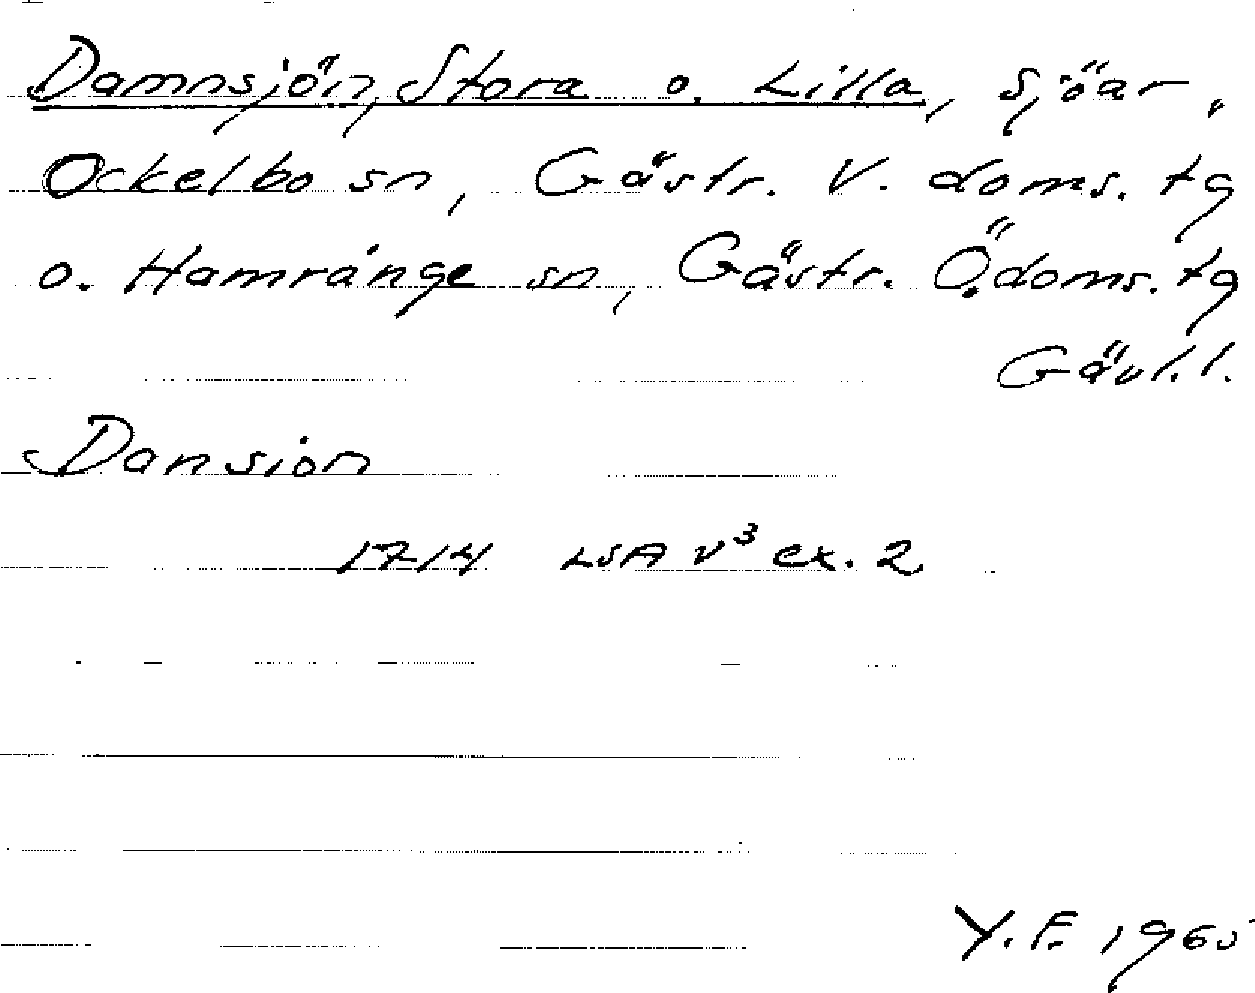 Damnsjön, Stora o. Lilla, sjöar,
Ockelbo sn, Gästr. V. doms. tg
o. Hamrånge sn, Gästr. Ö. doms. tg
Gävl. l.
Dansion
1714 LSA v³ ex. 2
Y. F. 1965